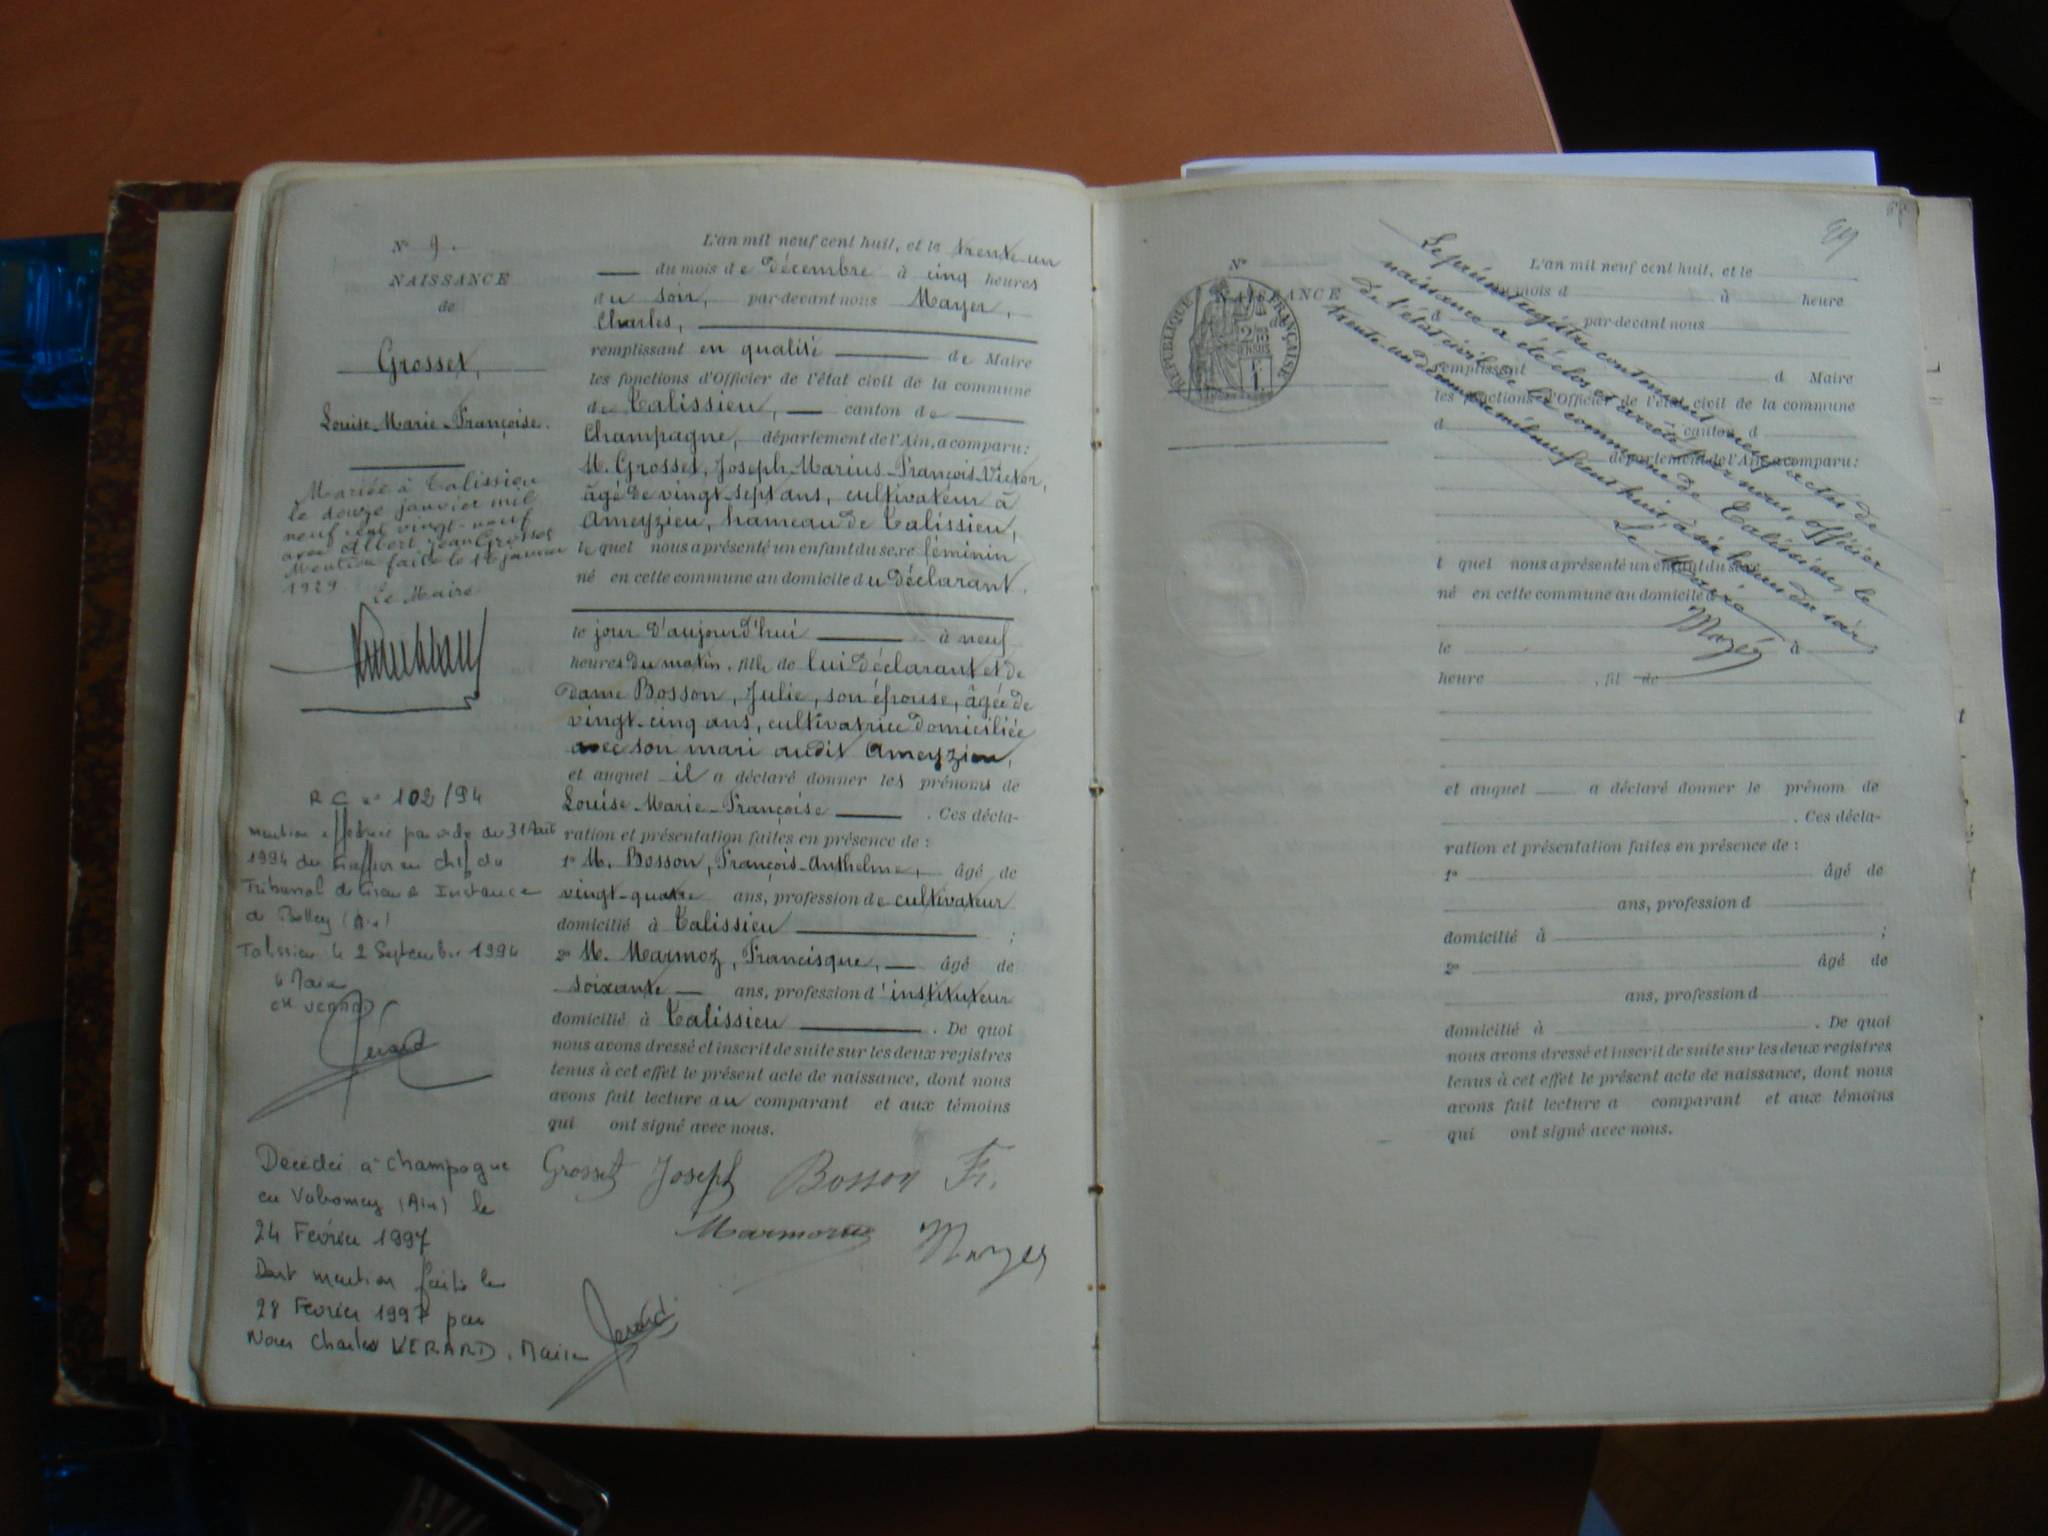 N° 9.
NAISSANCE
de
Grosset,
Louise-Marie-Françoise.
Mariée à Talissieu
le douze janvier mil
neuf cent vingt-neuf
avec Albert Jean Grosset
Mention faite le 12 janvier
1929
Le Maire
R C n° 102/94
mention effectuée par avis du 31 Août
1994 du Greffier en chef du
Tribunal de Grande Instance
de Belley (Ain)
Talissieu le 2 Septembre 1994
le Maire
CH VERARD
Verard
Décédée à Champagne
en Valromey (Ain) le
24 Février 1997
Dont mention faite le
28 Février 1997 par
Nous Charles VERARD, Maire
Verard
L'an mil neuf cent huit, et le trente un
du mois de décembre à cinq heures
du soir, par-devant nous Mayer,
Charles,
remplissant en qualité de Maire
les fonctions d'Officier de l'état civil de la commune
de Talissieu, canton de
Champagne, département de l'Ain, a comparu:
M. Grosset, Joseph-Marius-François-Victor,
âgé de vingt-sept ans, cultivateur à
Ameyzieu, hameau de Talissieu,
lequel nous a présenté un enfant du sexe féminin
né en cette commune au domicile du déclarant,
le jour d'aujourd'hui à neuf
heures du matin, fille de lui déclarant et de
dame Bosson, Julie, son épouse, âgée de
vingt-cinq ans, cultivatrice domiciliée
avec son mari audit Ameyzieu,
et auquel il a déclaré donner les prénoms de
Louise-Marie-Françoise . Ces décla-
ration et présentation faites en présence de :
1° M. Bosson, François-Anthelme, âgé de
vingt-quatre ans, profession de cultivateur
domicilié à Talissieu ;
2° M. Marmoz, Francisque, âgé de
soixante ans, profession d'instituteur
domicilié à Talissieu . De quoi
nous avons dressé et inscrit de suite sur les deux registres
tenus à cet effet le présent acte de naissance, dont nous
avons fait lecture au comparant et aux témoins
qui ont signé avec nous.
Grosset Joseph Bosson Fr.
Marmoz Mayer
N°
NAISSANCE
d
RÉPUBLIQUE FRANÇAISE
Le présent registre contenant neuf actes de
naissance a été clos et arrêté par nous, officier
de l'état civil de la commune de Talissieu, le
trente un décembre mil neuf cent huit à six heures du soir
Le Maire
Mayer
L'an mil neuf cent huit, et le
du mois d à heure
d par-devant nous
remplissant d Maire
les fonctions d'Officier de l'état civil de la commune
d canton d
département de l'Ain, a comparu:
l quel nous a présenté un enfant du sexe
né en cette commune au domicile d
le à
heure , fil de
et auquel a déclaré donner le prénom de
. Ces décla-
ration et présentation faites en présence de :
1° âgé de
ans, profession d
domicilié à ;
2° âgé de
ans, profession d
domicilié à . De quoi
nous avons dressé et inscrit de suite sur les deux registres
tenus à cet effet le présent acte de naissance, dont nous
avons fait lecture a comparant et aux témoins
qui ont signé avec nous.